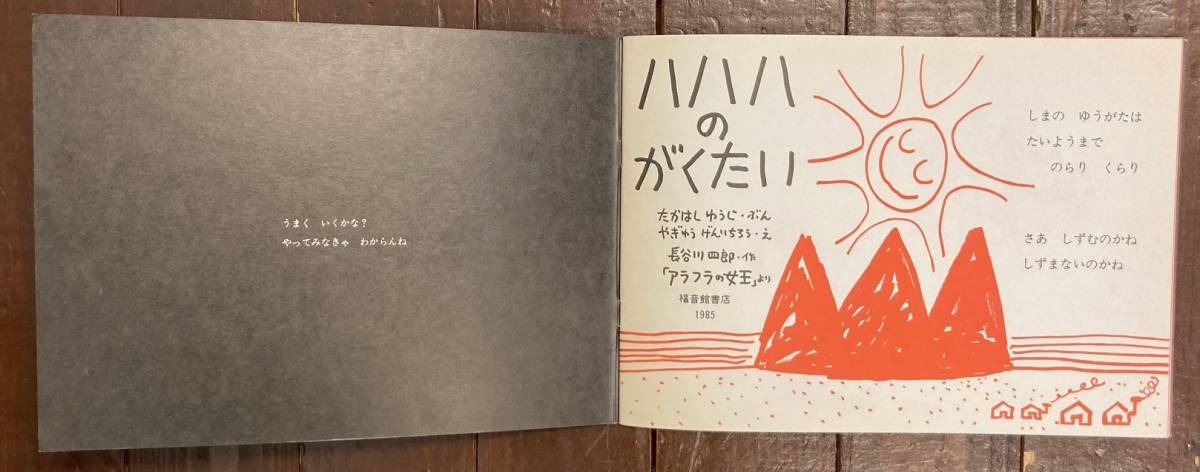 うまく いくかな?
やってみなきゃ わからんね
ハハハ
の
がくたい
たかはし ゆうじ・ぶん
やぎゅう げんいちろう・え
長谷川 四郎・作
「アラフラの女王」より
福音館書店
1985
しまの ゆうがたは
たいようまで
のらり くらり
さあ しずむのかね
しずまないのかね